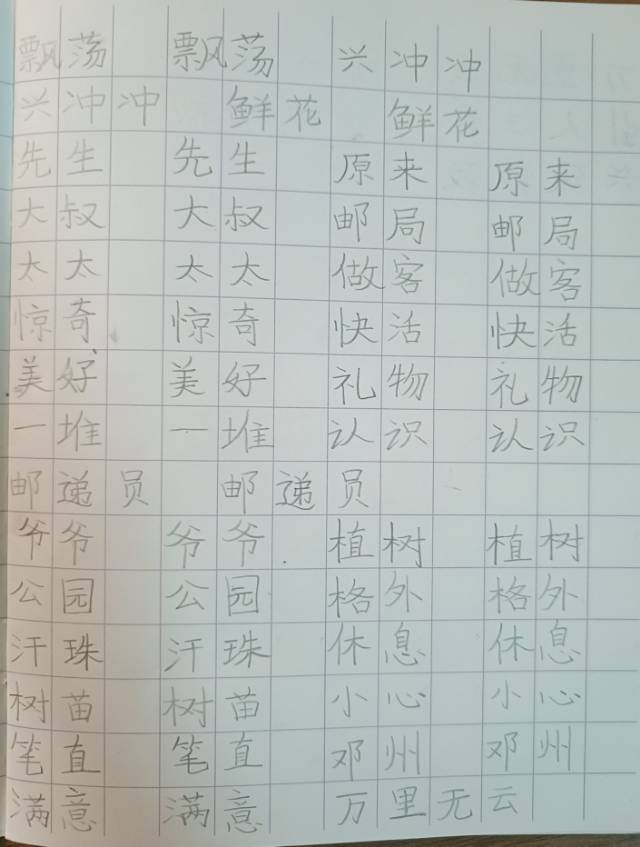 飘荡 飘荡 兴冲冲
兴冲冲 鲜花 鲜花
先生 先生 原来 原来
大叔 大叔 邮局 邮局
太太 太太 做客 做客
惊奇 惊奇 快活 快活
美好 美好 礼物 礼物
一堆 一堆 认识 认识
邮递员 邮递员
爷爷 爷爷 植树 植树
公园 公园 格外 格外
汗珠 汗珠 休息 休息
树苗 树苗 小心 小心
笔直 笔直 邓州 邓州
满意 满意 万里无云